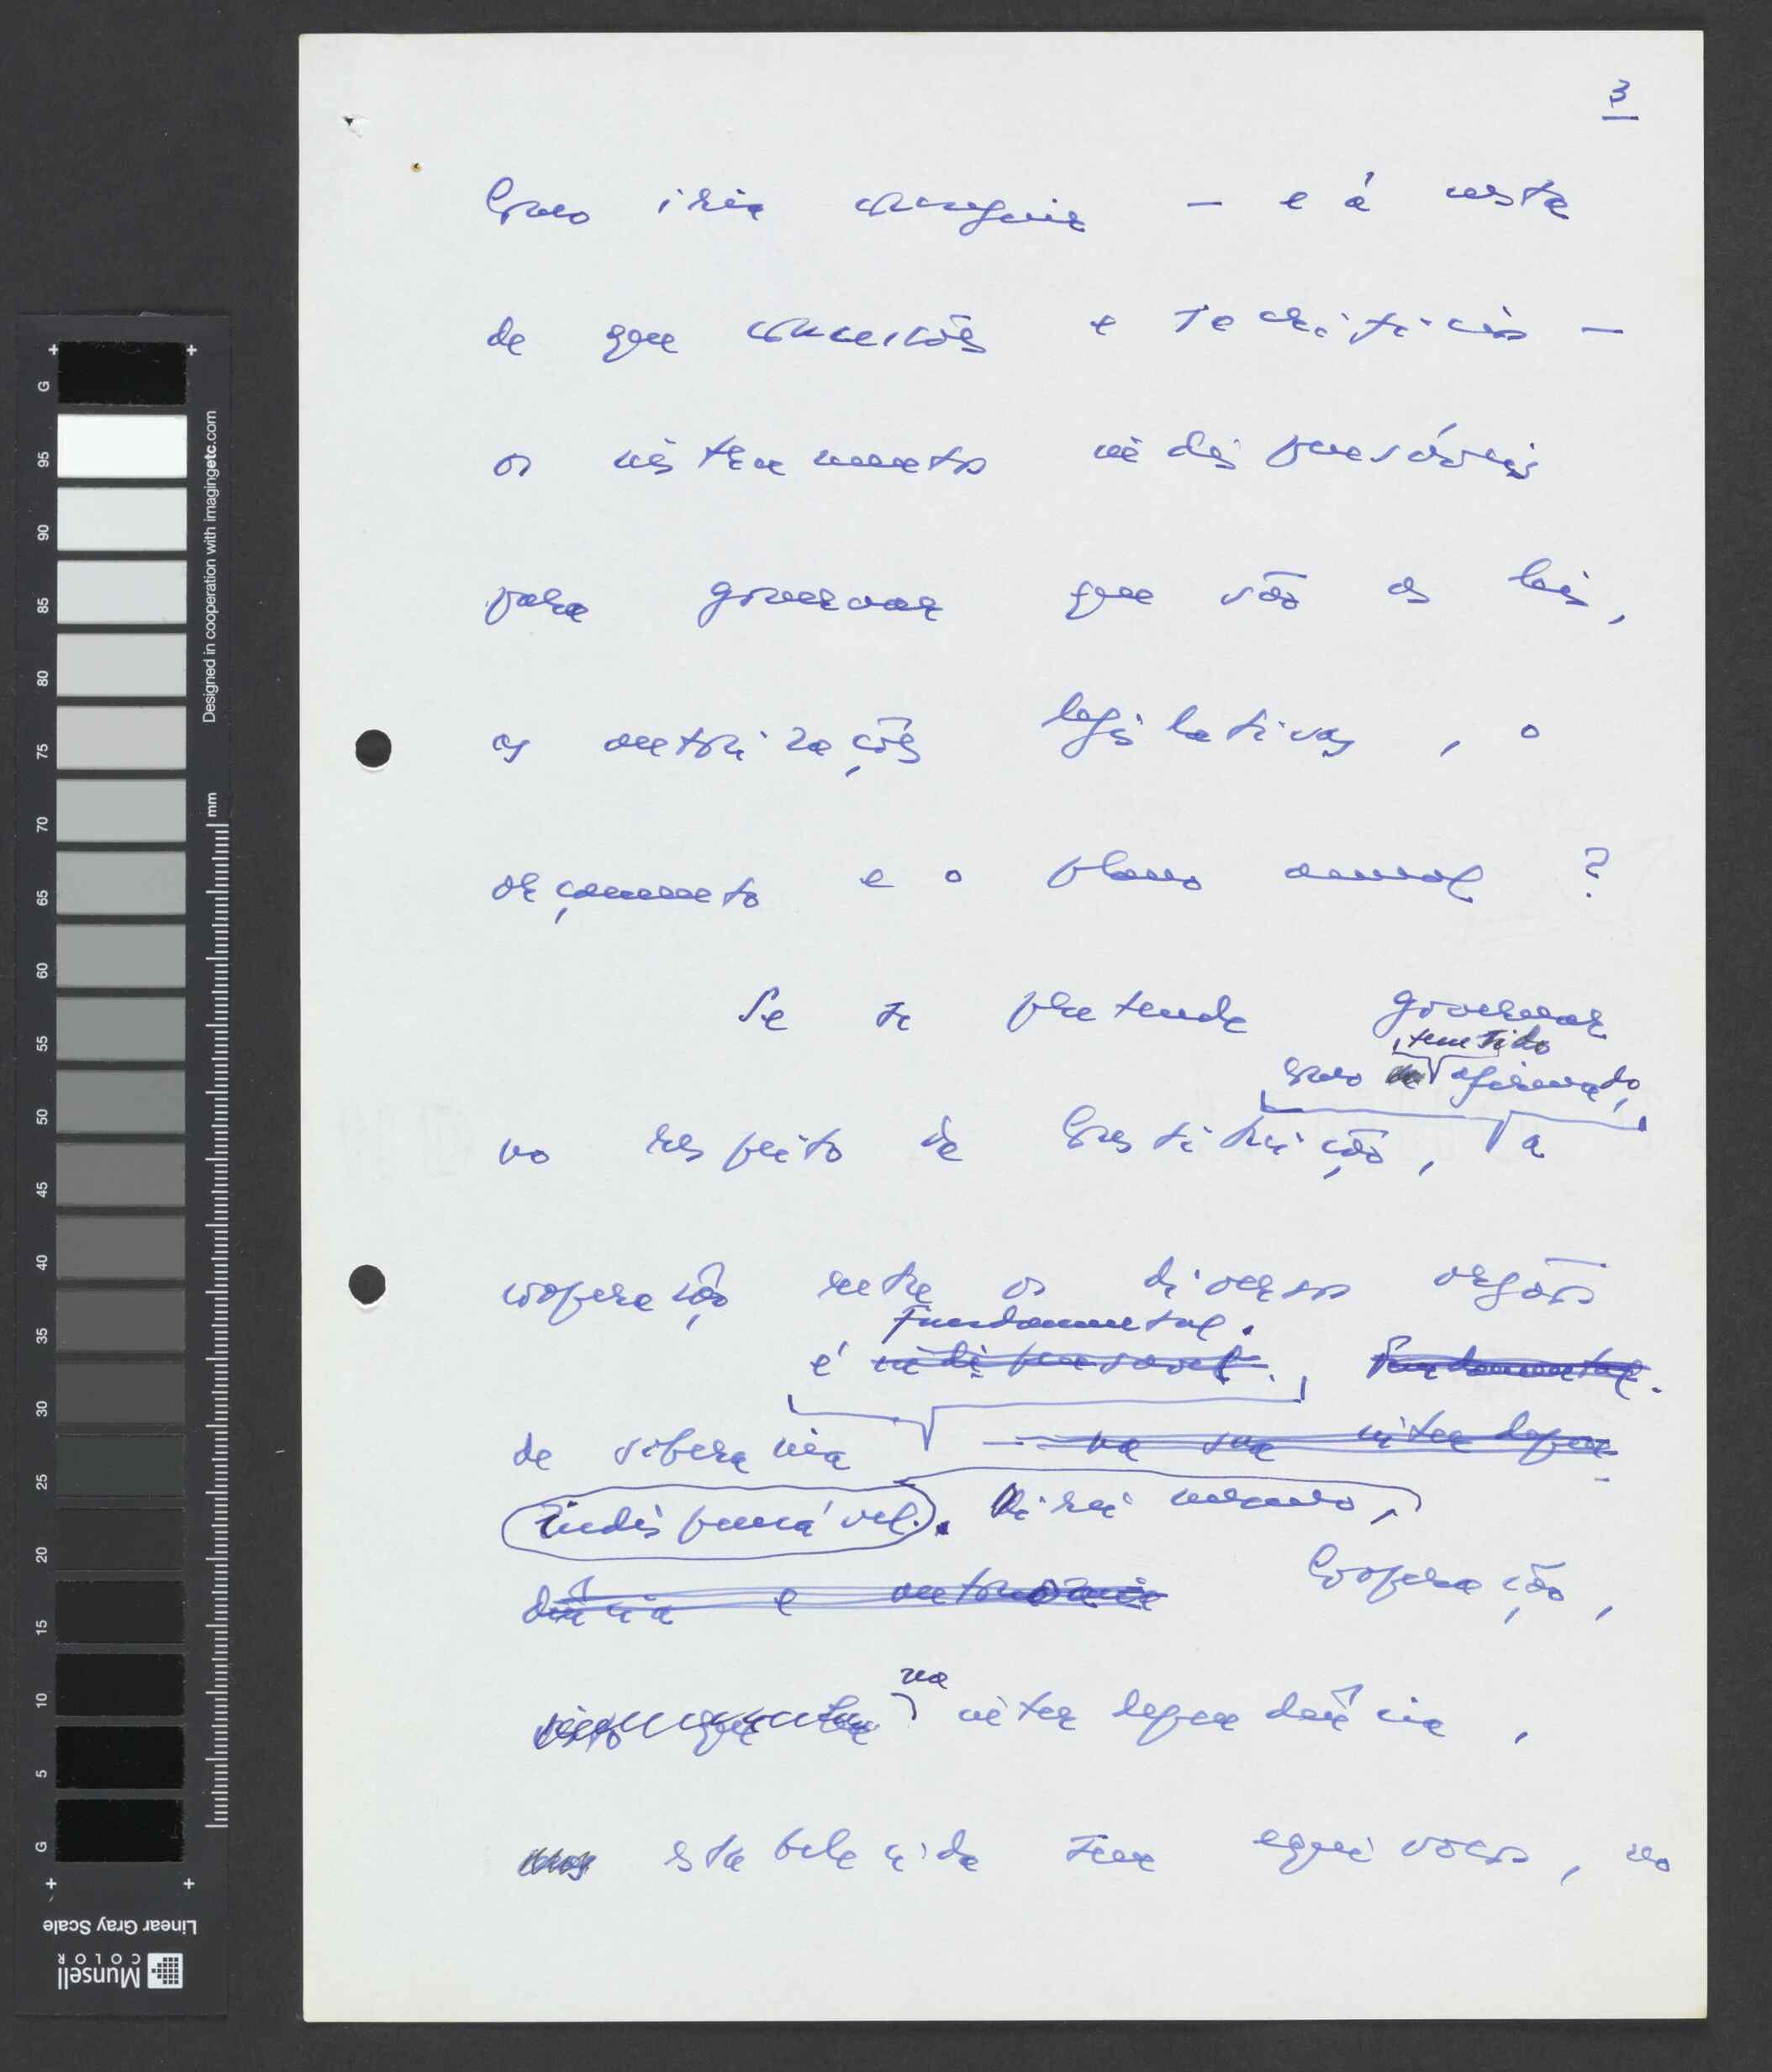 3
Como iria conseguir — e à custa
de que concessões e sacrifícios —
os instrumentos indispensáveis
para governar que são as leis,
as autorizações legislativas, o
orçamento e o plano anual?
Se se pretende governar
como tem sido afirmado,
no respeito da Constituição, a
cooperação entre os diversos orgãos
Fundamental.
é indispensável. Fundamental.
de soberania — na sua interdepen-
indispensável. Direi mesmo,
dência e autonomia Cooperação,
na interdependência,
estabelecida sem equívocos, no
G 95 90 85 80 75 70 65 60 55 50 45 40 35 30 25 20 15 10 5 G
mm
Designed in cooperation with imagingetc.com
Linear Gray Scale
Munsell
COLOR